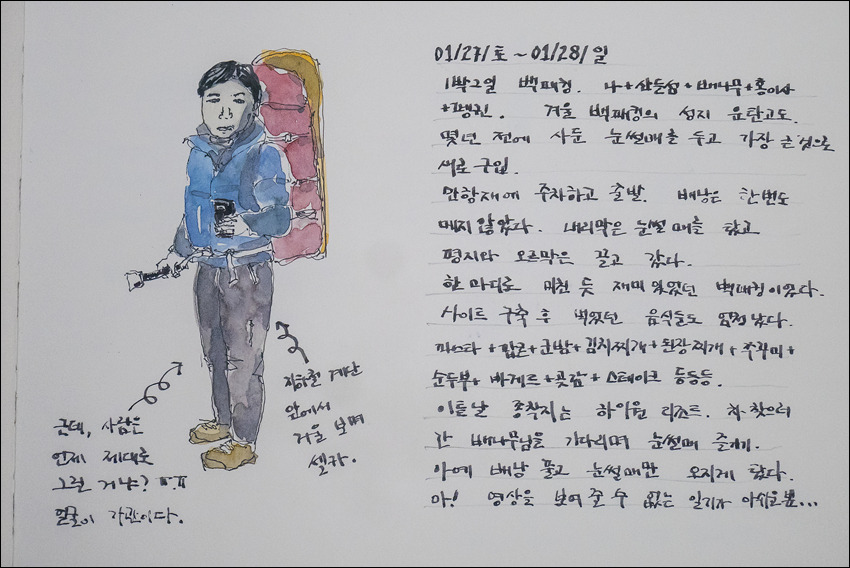 01/27/토 ~ 01/28/일
1박2일 백패킹. 나+산들섬+배나무+홍이사
겨울 백패킹의 성지 운탄고도.
몇년 전에 사둔 눈썰매를 두고 가장 큰 놈으로
새로 구입.
만항재에 주차하고 출발. 배낭은 한번도
메지 않았다. 내리막은 눈썰매를 탔고
평지와 오르막은 끌고 갔다.
한 마디로 미친 듯 재미 있었던 백패킹이었다.
사이트 구축 후 먹었던 음식들도 엄청났다.
파스타+팝콘+군밤+김치찌개+된장찌개+쭈꾸미+
순두부+바게트+곶감+스테이크 등등등.
이튿날 종착지는 하이원 리조트. 차 찾으러
간 배나무님을 기다리며 눈썰매 즐기기.
아예 배낭 풀고 눈썰매만 오지게 탔다.
마! 영상을 보여 줄 수 없는 일기가 아쉬울뿐...
지하철 계단
앞에서
거울 보며
셀카.
근데, 사람은
언제 제대로
그릴 거냐? ㅠ.ㅠ
얼굴이 가관이다.